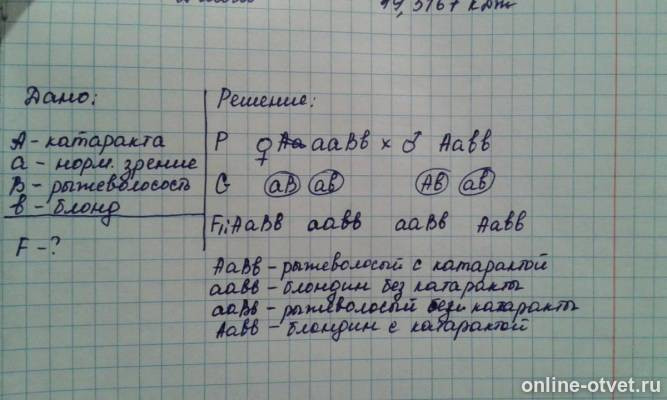 19,5167 кДж
Дано:
А - катаракта
а - норм. зрение
В - рыжеволосость
в - блонд
F - ?
Решение:
P ♀ Аа ааВв × ♂ Аавв
G аВ ав Ав ав
F₁: АаВв аавв ааВв Аавв
АаВв - рыжеволосый с катарактой
аавв - блондин без катаракты
ааВв - рыжеволосый без катаракты
Аавв - блондин с катарактой
online-otvet.ru